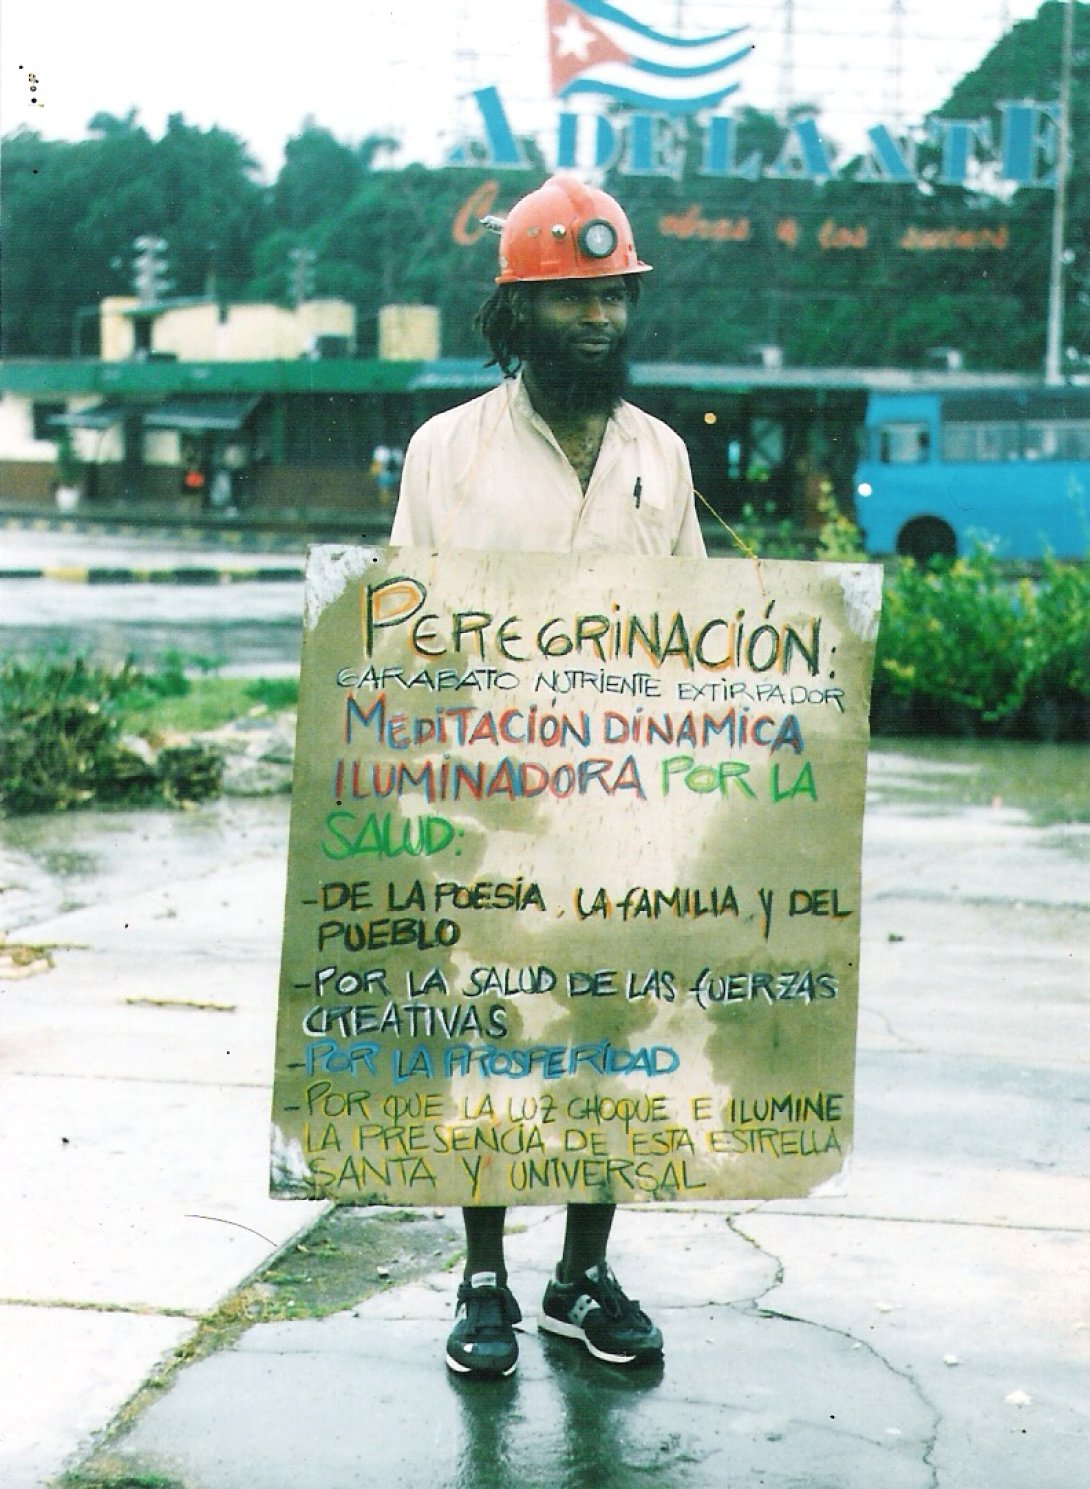 ADELANTE
obras y los sueños
PEREGRINACIÓN:
GARABATO NUTRIENTE EXTIRPADOR
MEDITACIÓN DINAMICA
ILUMINADORA POR LA
SALUD:
- DE LA POESÍA, LA FAMILIA Y DEL
PUEBLO
- POR LA SALUD DE LAS FUERZAS
CREATIVAS
- POR LA PROSPERIDAD
- POR QUE LA LUZ CHOQUE E ILUMINE
LA PRESENCIA DE ESTA ESTRELLA
SANTA Y UNIVERSAL